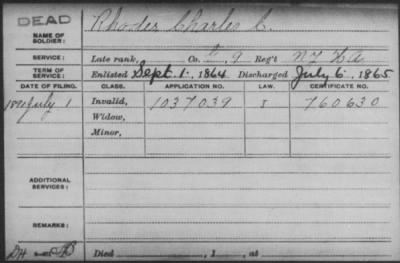 DEAD
NAME OF SOLDIER: Rhodes Charles C.
SERVICE: Late rank, Co. I, 9 Reg't NY HA
TERM OF SERVICE: Enlisted Sept. 1, 1864 Discharged July 6, 1865
DATE OF FILING. CLASS. APPLICATION NO. LAW. CERTIFICATE NO.
1891 July 1 Invalid, 1037039 760630
Widow,
Minor,
ADDITIONAL SERVICES:
REMARKS:
Died , 1 , at